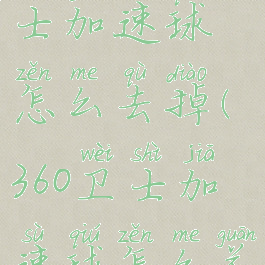 士加速球
zěn me qù diào
怎么去掉(
wèi shì jiā
360卫士加
sù qiú zěn me guān
速球怎么关